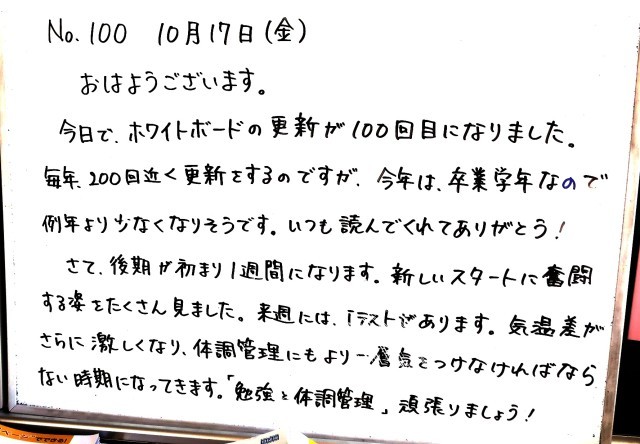 No.100 10月17日(金)
おはようございます。
今日で、ホワイトボードの更新が100回目になりました。
毎年、200回近く更新をするのですが、今年は、卒業学年なので
例年より少なくなりそうです。いつも読んでくれてありがとう!
さて、後期が初まり1週間になります。新しいスタートに奮闘
する姿をたくさん見ました。来週には、テストがあります。気温差が
さらに激しくなり、体調管理にもより一層気をつけなければなら
ない時期になってきます。「勉強と体調管理」頑張りましょう!